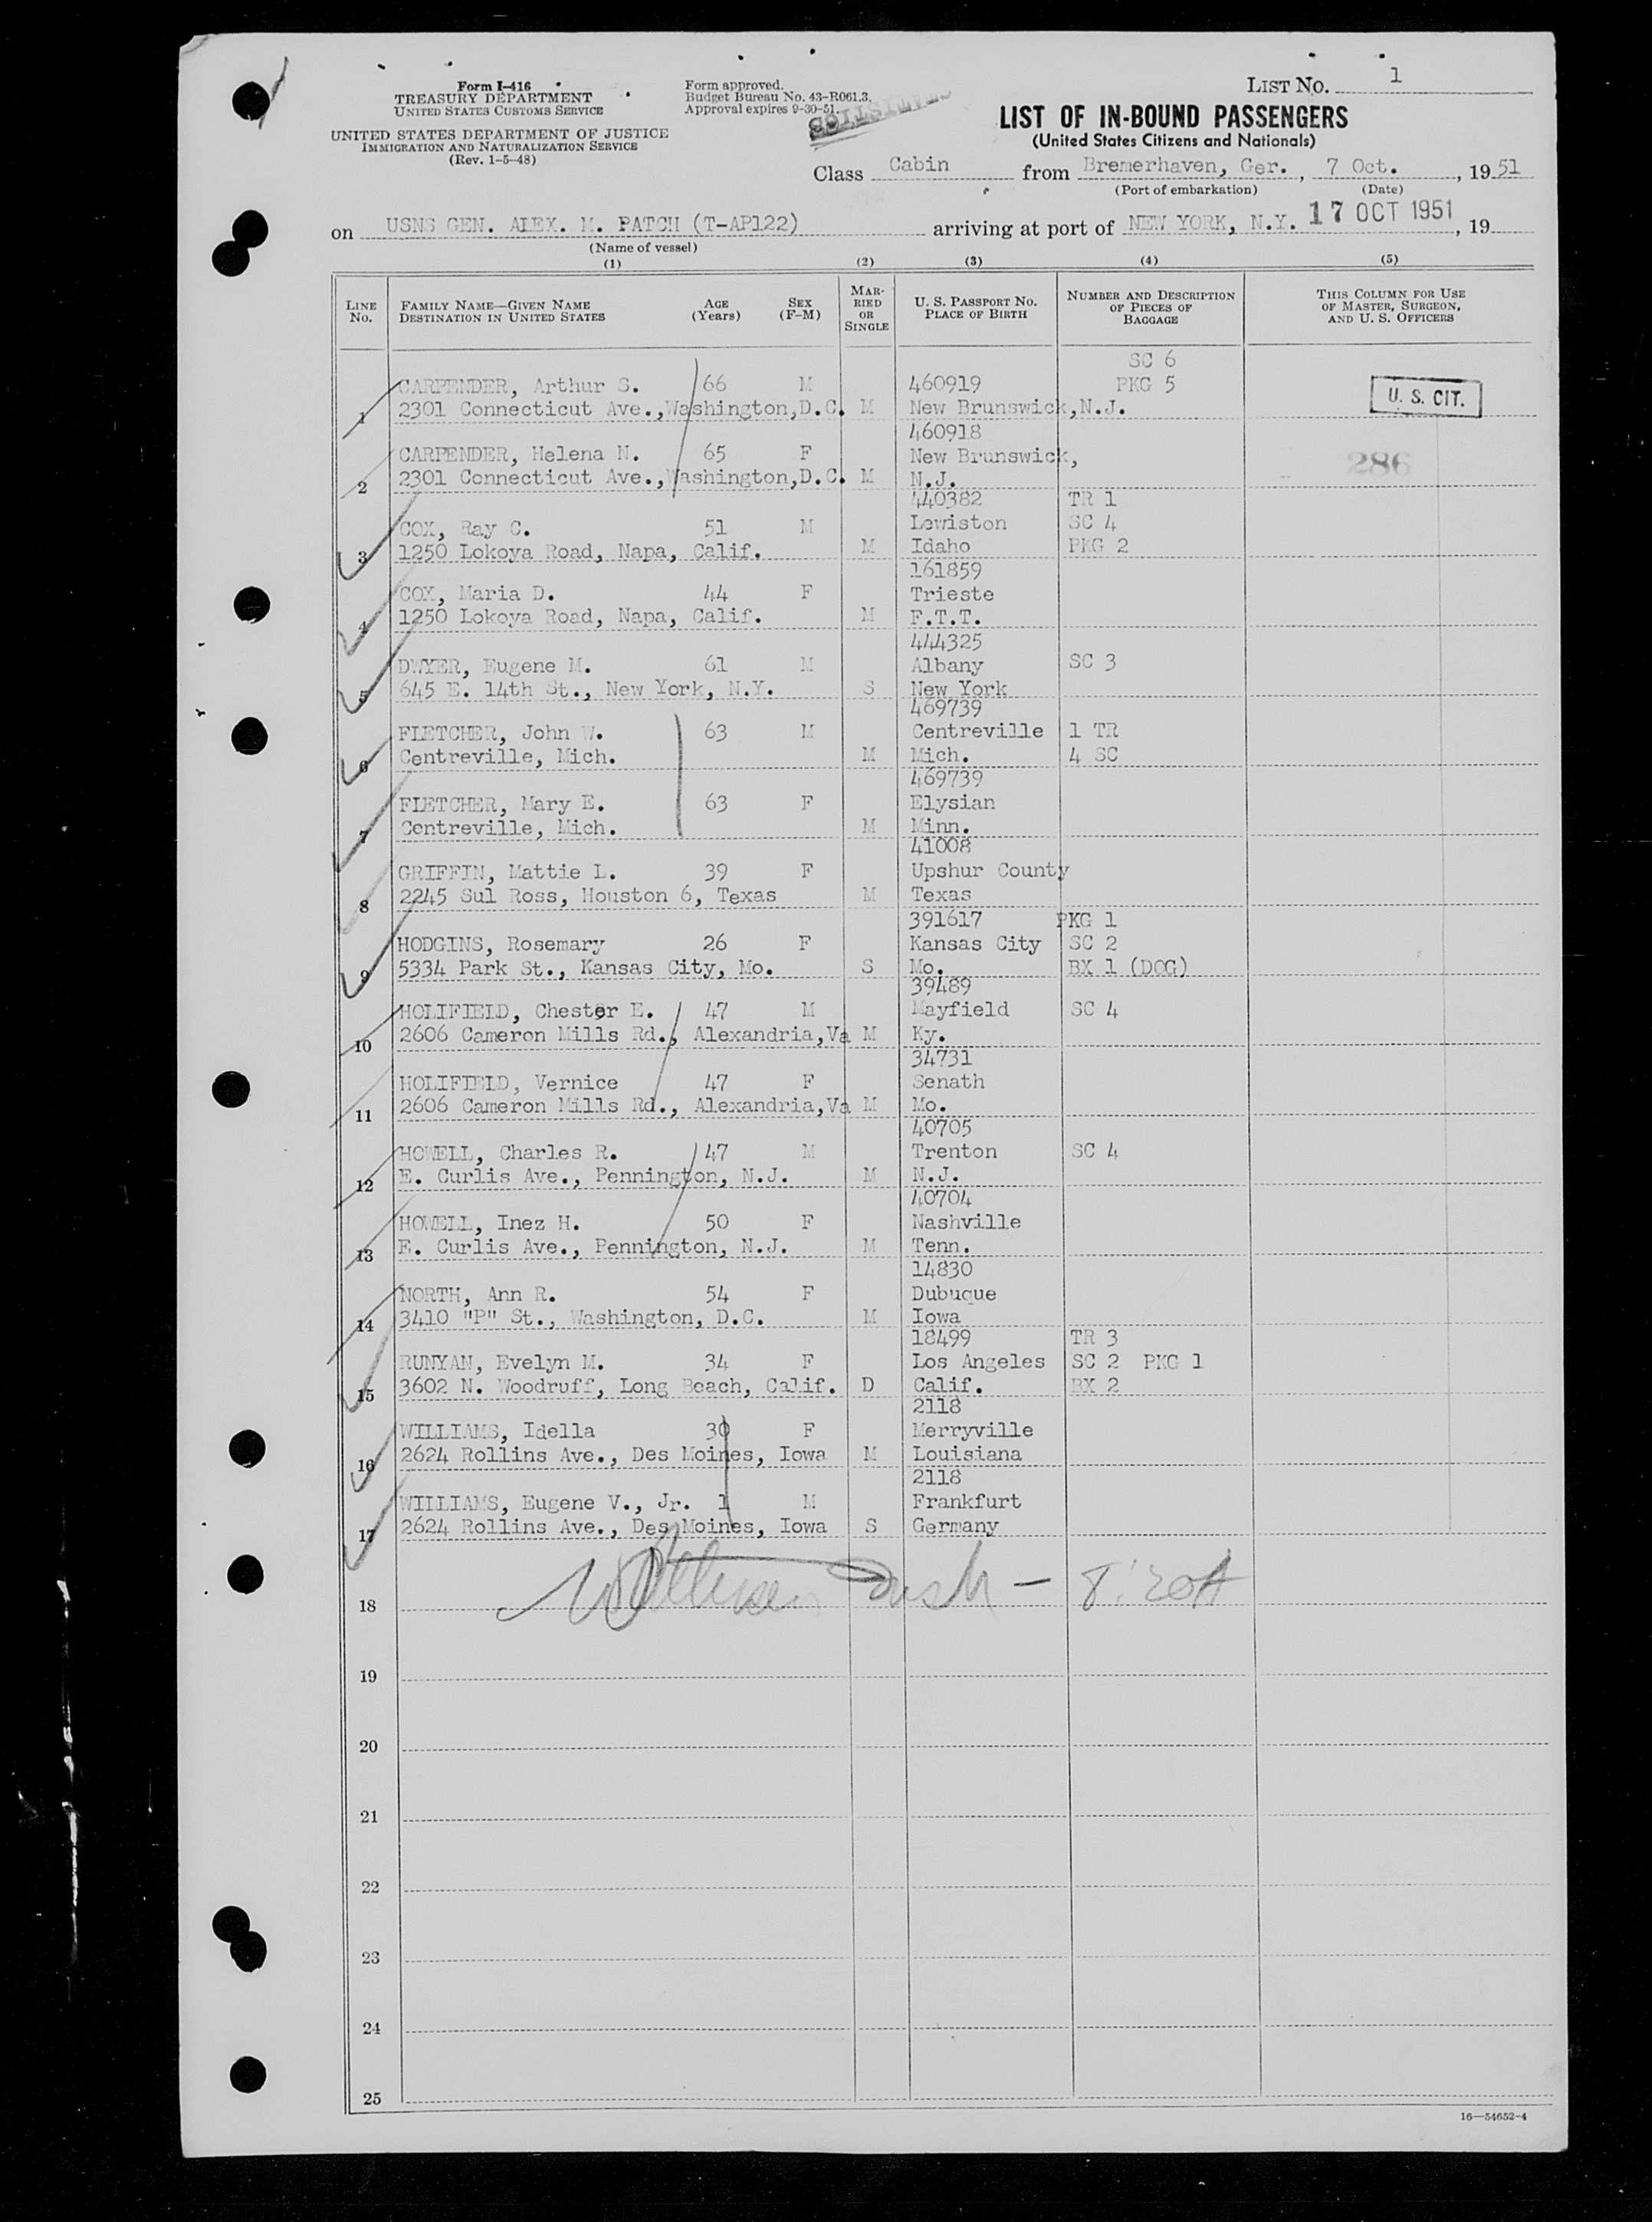 Form I-416
TREASURY DEPARTMENT
UNITED STATES CUSTOMS SERVICE
UNITED STATES DEPARTMENT OF JUSTICE
IMMIGRATION AND NATURALIZATION SERVICE
(Rev. 1-5-48)
Form approved.
Budget Bureau No. 43-R061.3.
Approval expires 9-30-51.
LIST NO. 1
LIST OF IN-BOUND PASSENGERS
(United States Citizens and Nationals)
Class Cabin from Bremerhaven, Ger., 7 Oct., 1951
(Port of embarkation) (Date)
on USNS GEN. ALEX. M. PATCH (T-AP122) arriving at port of NEW YORK, N.Y. 17 OCT 1951, 19
(Name of vessel)
(1) (2) (3) (4) (5)
LINE NO. FAMILY NAME—GIVEN NAME DESTINATION IN UNITED STATES AGE (Years) SEX (F-M) MARRIED OR SINGLE U. S. PASSPORT NO. PLACE OF BIRTH NUMBER AND DESCRIPTION OF PIECES OF BAGGAGE THIS COLUMN FOR USE OF MASTER, SURGEON, AND U. S. OFFICERS
SC 6
CARPENDER, Arthur S. 66 M 460919 PKG 5
U. S. CIT.
1 2301 Connecticut Ave.,Washington,D.C. M New Brunswick,N.J.
460918
CARPENDER, Helena N. 65 F New Brunswick,
286
2 2301 Connecticut Ave.,Washington,D.C. M N.J.
440382 TR 1
COX, Ray C. 51 M Lewiston SC 4
3 1250 Lokoya Road, Napa, Calif. M Idaho PKG 2
161859
COX, Maria D. 44 F Trieste
4 1250 Lokoya Road, Napa, Calif. M F.T.T.
444325
DWYER, Eugene M. 61 M Albany SC 3
5 645 E. 14th St., New York, N.Y. S New York
469739
FLETCHER, John W. 63 M Centreville 1 TR
6 Centreville, Mich. M Mich. 4 SC
469739
FLETCHER, Mary E. 63 F Elysian
7 Centreville, Mich. M Minn.
41008
GRIFFIN, Mattie L. 39 F Upshur County
8 2245 Sul Ross, Houston 6, Texas M Texas
391617 PKG 1
HODGINS, Rosemary 26 F Kansas City SC 2
9 5334 Park St., Kansas City, Mo. S Mo. BX 1 (DOG)
39489
HOLIFIELD, Chester E. 47 M Mayfield SC 4
10 2606 Cameron Mills Rd., Alexandria,Va M Ky.
34731
HOLIFIELD, Vernice 47 F Senath
11 2606 Cameron Mills Rd., Alexandria,Va M Mo.
40705
HOWELL, Charles R. 47 M Trenton SC 4
12 E. Curlis Ave., Pennington, N.J. M N.J.
40704
HOWELL, Inez H. 50 F Nashville
13 E. Curlis Ave., Pennington, N.J. M Tenn.
14830
NORTH, Ann R. 54 F Dubuque
14 3410 "P" St., Washington, D.C. M Iowa
18499 TR 3
RUNYAN, Evelyn M. 34 F Los Angeles SC 2 PKG 1
15 3602 N. Woodruff, Long Beach, Calif. D Calif. BX 2
2118
WILLIAMS, Idella 30 F Merryville
16 2624 Rollins Ave., Des Moines, Iowa M Louisiana
2118
WILLIAMS, Eugene V., Jr. 1 M Frankfurt
17 2624 Rollins Ave., Des Moines, Iowa S Germany
18
19
20
21
22
23
24
25
16—54652-4